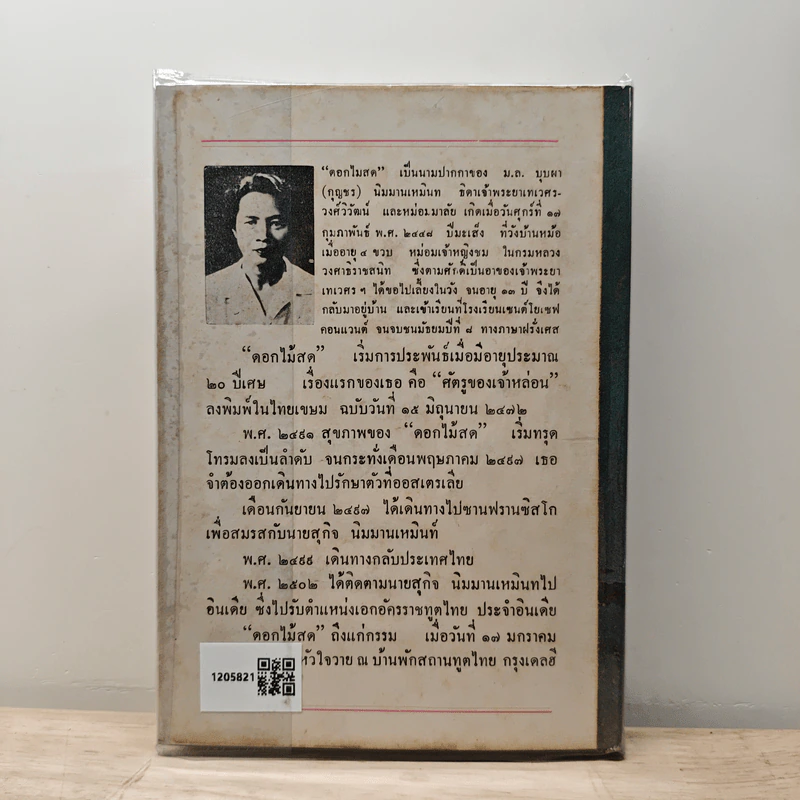 “ดอกไม้สด” เป็นนามปากกาของ ม.ล. บุบผา
(กุญชร) นิมมานเหมินท ธิดาเจ้าพระยาเทเวศร-
วงศ์วิวัฒน์ และหม่อมมาลัย เกิดเมื่อวันศุกร์ที่ ๑๗
กุมภาพันธ์ พ.ศ. ๒๔๔๘ ปีมะเส็ง ที่วังบ้านหม้อ
เมื่ออายุ ๔ ขวบ หม่อมเจ้าหญิงชม ในกรมหลวง
วงศาธิราชสนิท ซึ่งตามศักดิ์เป็นอาของเจ้าพระยา
เทเวศร ฯ ได้ขอไปเลี้ยงในวัง จนอายุ ๑๓ ปี จึงได้
กลับมาอยู่บ้าน และเข้าเรียนที่โรงเรียนเซนต์โยเซฟ
คอนแวนต์ จนจบชนมัธยมปีที่ ๘ ทางภาษาฝรั่งเศส
“ดอกไม้สด” เริ่มการประพันธ์เมื่อมีอายุประมาณ
๒๐ ปีเศษ เรื่องแรกของเธอ คือ “ศัตรูของเจ้าหล่อน”
ลงพิมพ์ในไทยเขษม ฉบับวันที่ ๑๕ มิถุนายน ๒๔๗๒
พ.ศ. ๒๔๙๑ สุขภาพของ “ดอกไม้สด” เริ่มทรุด
โทรมลงเป็นลำดับ จนกระทั่งเดือนพฤษภาคม ๒๔๙๗ เธอ
จำต้องออกเดินทางไปรักษาตัวที่ออสเตรเลีย
เดือนกันยายน ๒๔๙๗ ได้เดินทางไปซานฟรานซิสโก
เพื่อสมรสกับนายสุกิจ นิมมานเหมินท์
พ.ศ. ๒๔๙๙ เดินทางกลับประเทศไทย
พ.ศ. ๒๕๐๒ ได้ติดตามนายสุกิจ นิมมานเหมินทไป
อินเดีย ซึ่งไปรับตำแหน่งเอกอัครราชทูตไทย ประจำอินเดีย
“ดอกไม้สด” ถึงแก่กรรม เมื่อวันที่ ๑๗ มกราคม
หัวใจวาย ณ บ้านพักสถานทูตไทย กรุงเดลฮี
1205821